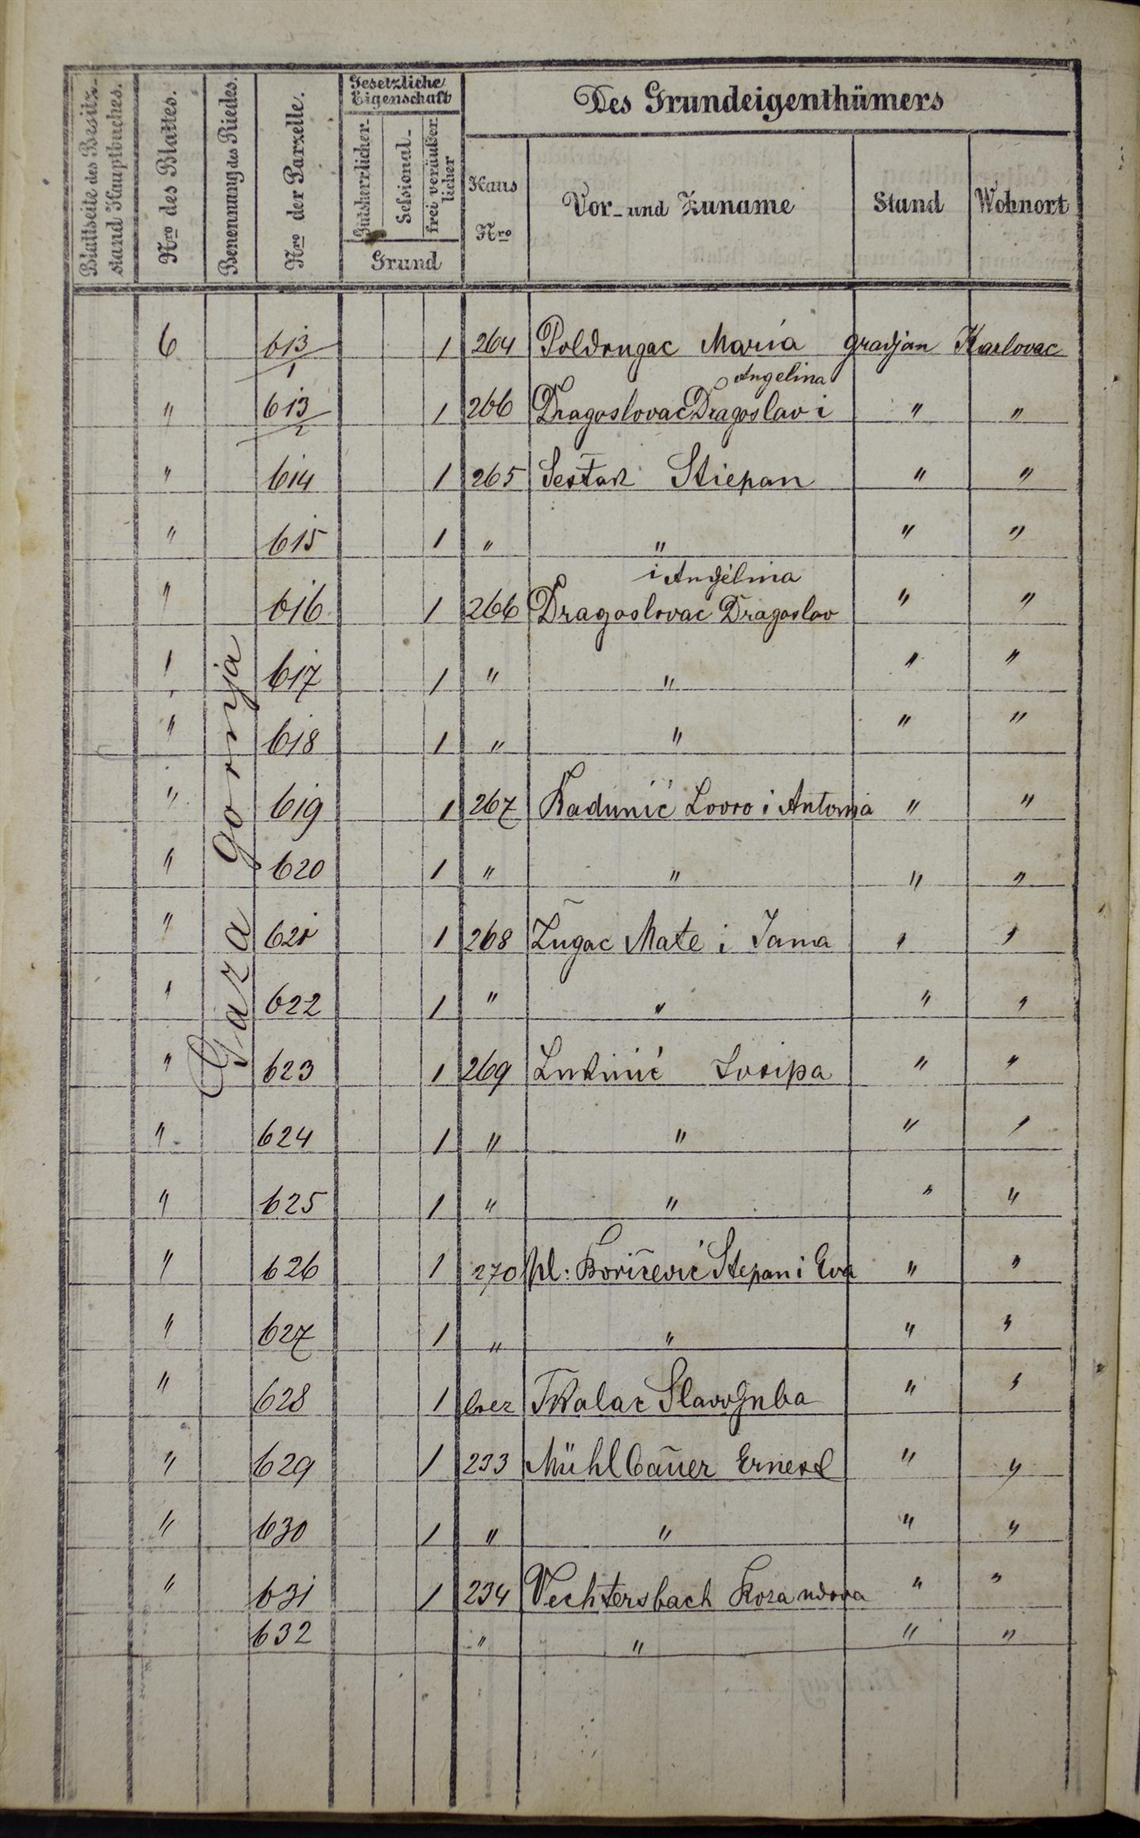 Blattseite des Besitz-stand Hauptbuches.
Nro des Blattes.
Benennung des Riedes.
Nro der Parzelle.
Gesetzliche Eigenschaft
Gutsherrlicher-
Sessional-
frei veräußerlicher
Grund
Des Grundeigenthümers
Haus Nro
Vor- und Zuname
Stand
Wohnort
Gaza gornja
6 613/1 1 264 Poldrugac Maria gradjan Karlovac
Angelina
" 613/2 1 266 Dragoslovac Dragoslav i " "
" 614 1 265 Šestak Stiepan " "
" 615 1 " " " "
i Angelina
" 616 1 266 Dragoslovac Dragoslav " "
" 617 1 " " " "
" 618 1 " " " "
" 619 1 267 Kadunić Lovro i Antonia " "
" 620 1 " " " "
" 621 1 268 Žugac Mate i Jana " "
" 622 1 " " " "
" 623 1 269 Lukinić Josipa " "
" 624 1 " " " "
" 625 1 " " " "
" 626 1 270 pl: Boričević Stepan i Eva " "
" 627 1 " " " "
" 628 1 brez Tkalac Slavoljuba " "
" 629 1 233 Mühlbauer Ernest " "
" 630 1 " " " "
" 631 1 234 Vechtersbach udova " "
632 " " " "